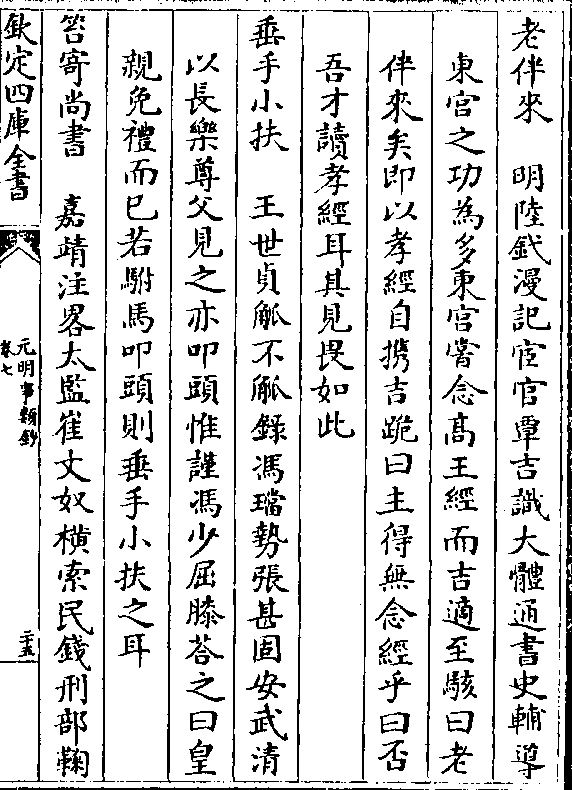 老伴來　明陸釴漫記宦官覃吉識大體通書史輔導
東宮之功為多東宮嘗念髙王經而吉適至駭曰老
伴來矣即以孝經自携吉跪曰主得無念經乎曰否
吾才讀孝經耳其見畏如此
垂手小扶　王世貞觚不觚錄馮璫勢張甚固安武清
以長樂尊父見之亦叩頭惟謹馮少屈膝荅之曰皇
親免禮而已若駙馬叩頭則垂手小扶之耳
笞寄尚書　嘉靖注畧太監崔文奴橫索民錢刑部鞠
欽定四庫全書
元明事類鈔
卷七
二十五